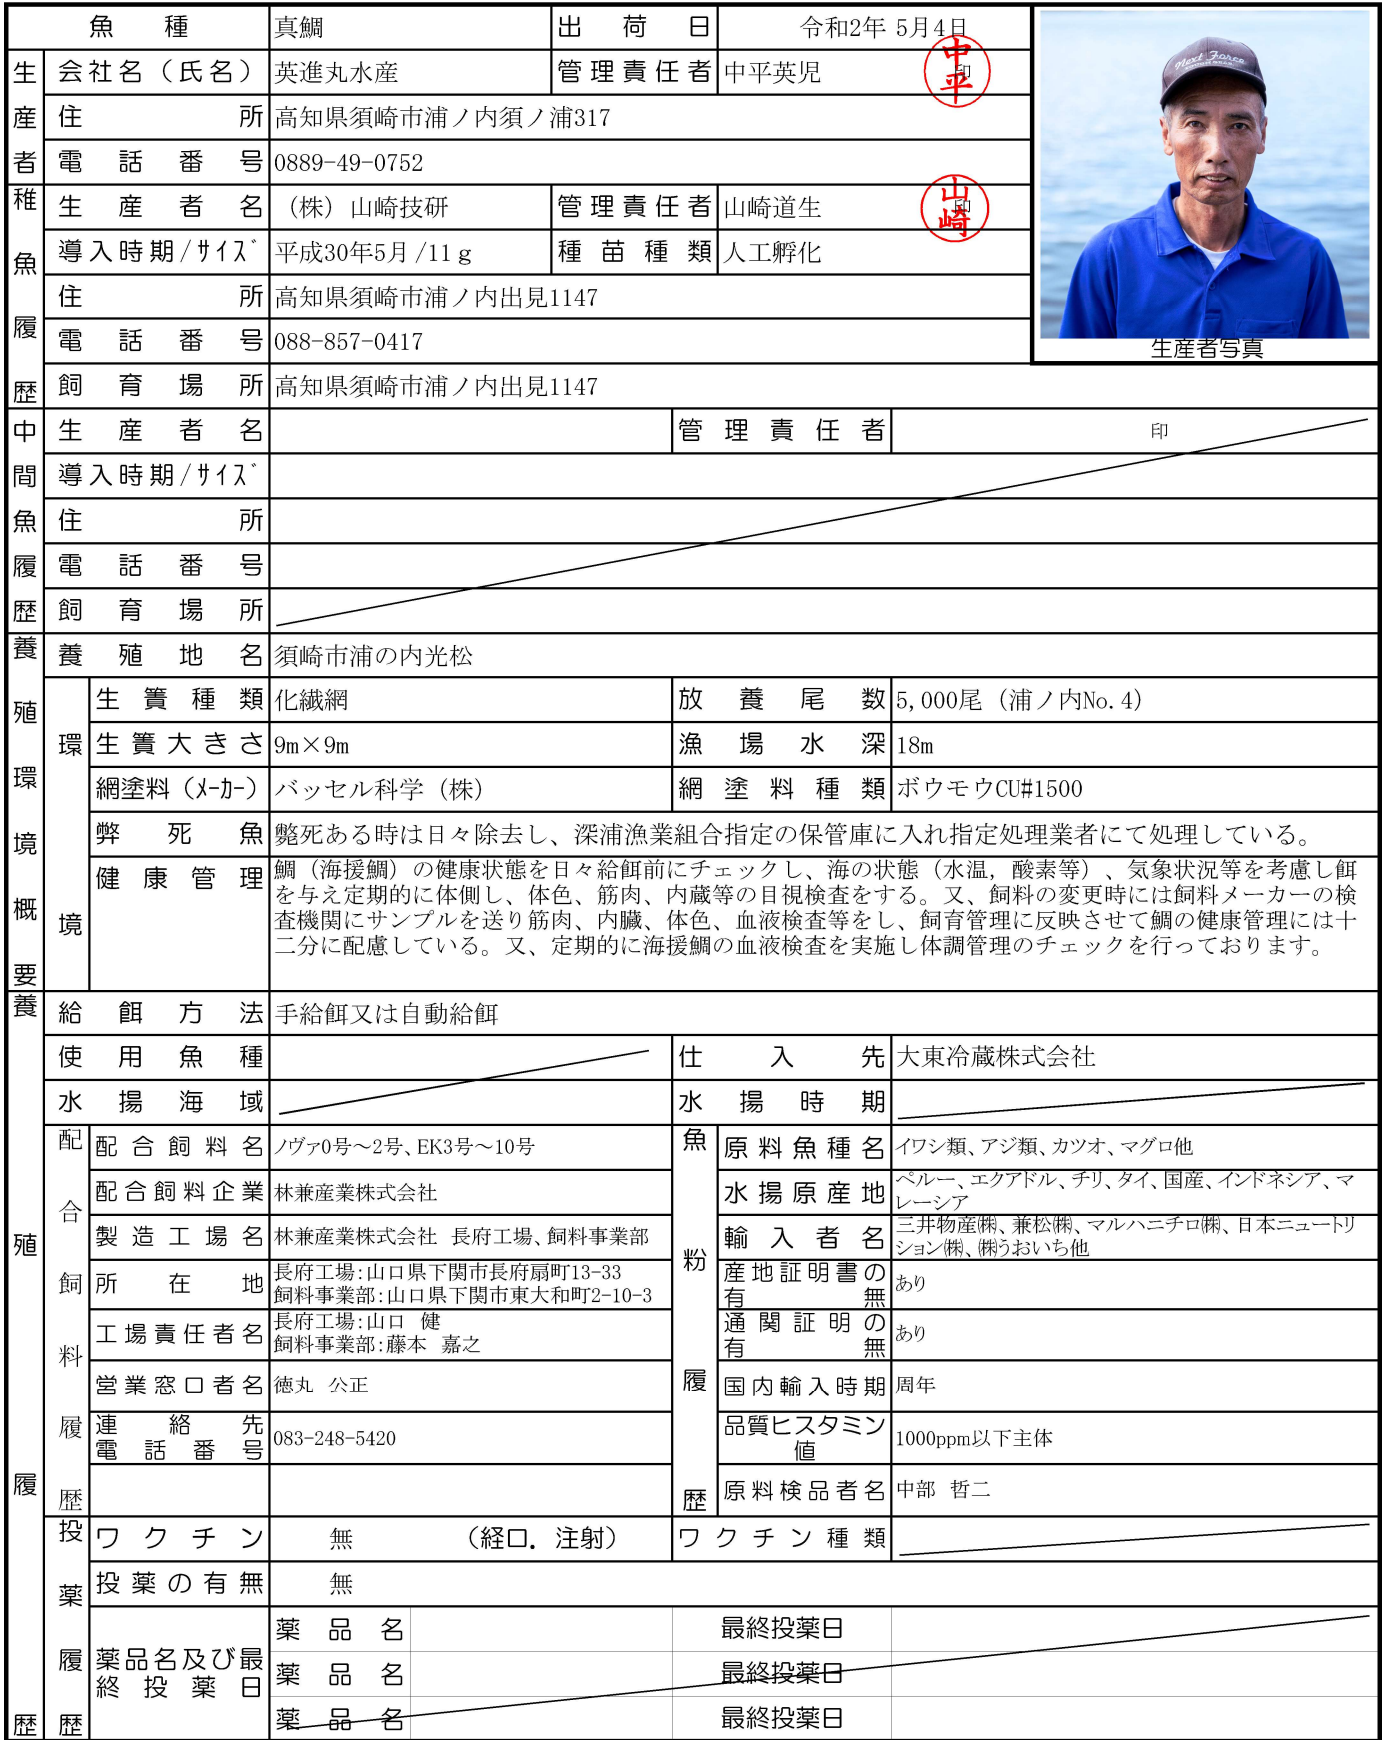 魚種 真鯛 出荷日 令和2年 5月4日
生産者 会社名（氏名） 英進丸水産 管理責任者 中平英児 印 中平
住所 高知県須崎市浦ノ内須ノ浦317
電話番号 0889-49-0752
稚魚履歴 生産者名 （株）山崎技研 管理責任者 山崎道生 印 山崎
導入時期/ｻｲｽﾞ 平成30年5月/11ｇ 種苗種類 人工孵化
住所 高知県須崎市浦ノ内出見1147
電話番号 088-857-0417
Next Force
生産者写真
飼育場所 高知県須崎市浦ノ内出見1147
中間魚履歴 生産者名 管理責任者 印
導入時期/ｻｲｽﾞ
住所
電話番号
飼育場所
養殖環境概要 養殖地名 須崎市浦の内光松
環境 生簀種類 化繊網 放養尾数 5,000尾（浦ノ内No.4）
生簀大きさ 9m×9m 漁場水深 18m
網塗料（ﾒｰｶｰ） バッセル科学（株） 網塗料種類 ボウモウCU#1500
弊死魚 斃死ある時は日々除去し、深浦漁業組合指定の保管庫に入れ指定処理業者にて処理している。
健康管理 鯛（海援鯛）の健康状態を日々給餌前にチェックし、海の状態（水温，酸素等）、気象状況等を考慮し餌
を与え定期的に体側し、体色、筋肉、内蔵等の目視検査をする。又、飼料の変更時には飼料メーカーの検
査機関にサンプルを送り筋肉、内臓、体色、血液検査等をし、飼育管理に反映させて鯛の健康管理には十
二分に配慮している。又、定期的に海援鯛の血液検査を実施し体調管理のチェックを行っております。
養殖履歴 給餌方法 手給餌又は自動給餌
使用魚種 仕入先 大東冷蔵株式会社
水揚海域 水揚時期
配合飼料履歴 配合飼料名 ノヴァ0号～2号、EK3号～10号 魚粉履歴 原料魚種名 イワシ類、アジ類、カツオ、マグロ他
配合飼料企業 林兼産業株式会社 水揚原産地 ペルー、エクアドル、チリ、タイ、国産、インドネシア、マ
レーシア
製造工場名 林兼産業株式会社 長府工場、飼料事業部 輸入者名 三井物産㈱、兼松㈱、マルハニチロ㈱、日本ニュートリ
ション㈱、㈱うおいち他
所在地 長府工場：山口県下関市長府扇町13-33
飼料事業部：山口県下関市東大和町2-10-3
産地証明書の
有無 あり
工場責任者名 長府工場：山口 健
飼料事業部：藤本 嘉之
通関証明の
有無 あり
営業窓口者名 徳丸 公正 国内輸入時期 周年
連絡先
電話番号 083-248-5420
品質ヒスタミン
値 1000ppm以下主体
原料検品者名 中部 哲二
投薬履歴 ワクチン 無 （経口．注射） ワクチン種類
投薬の有無 無
薬品名及び最
終投薬日
薬品名 最終投薬日
薬品名 最終投薬日
薬品名 最終投薬日